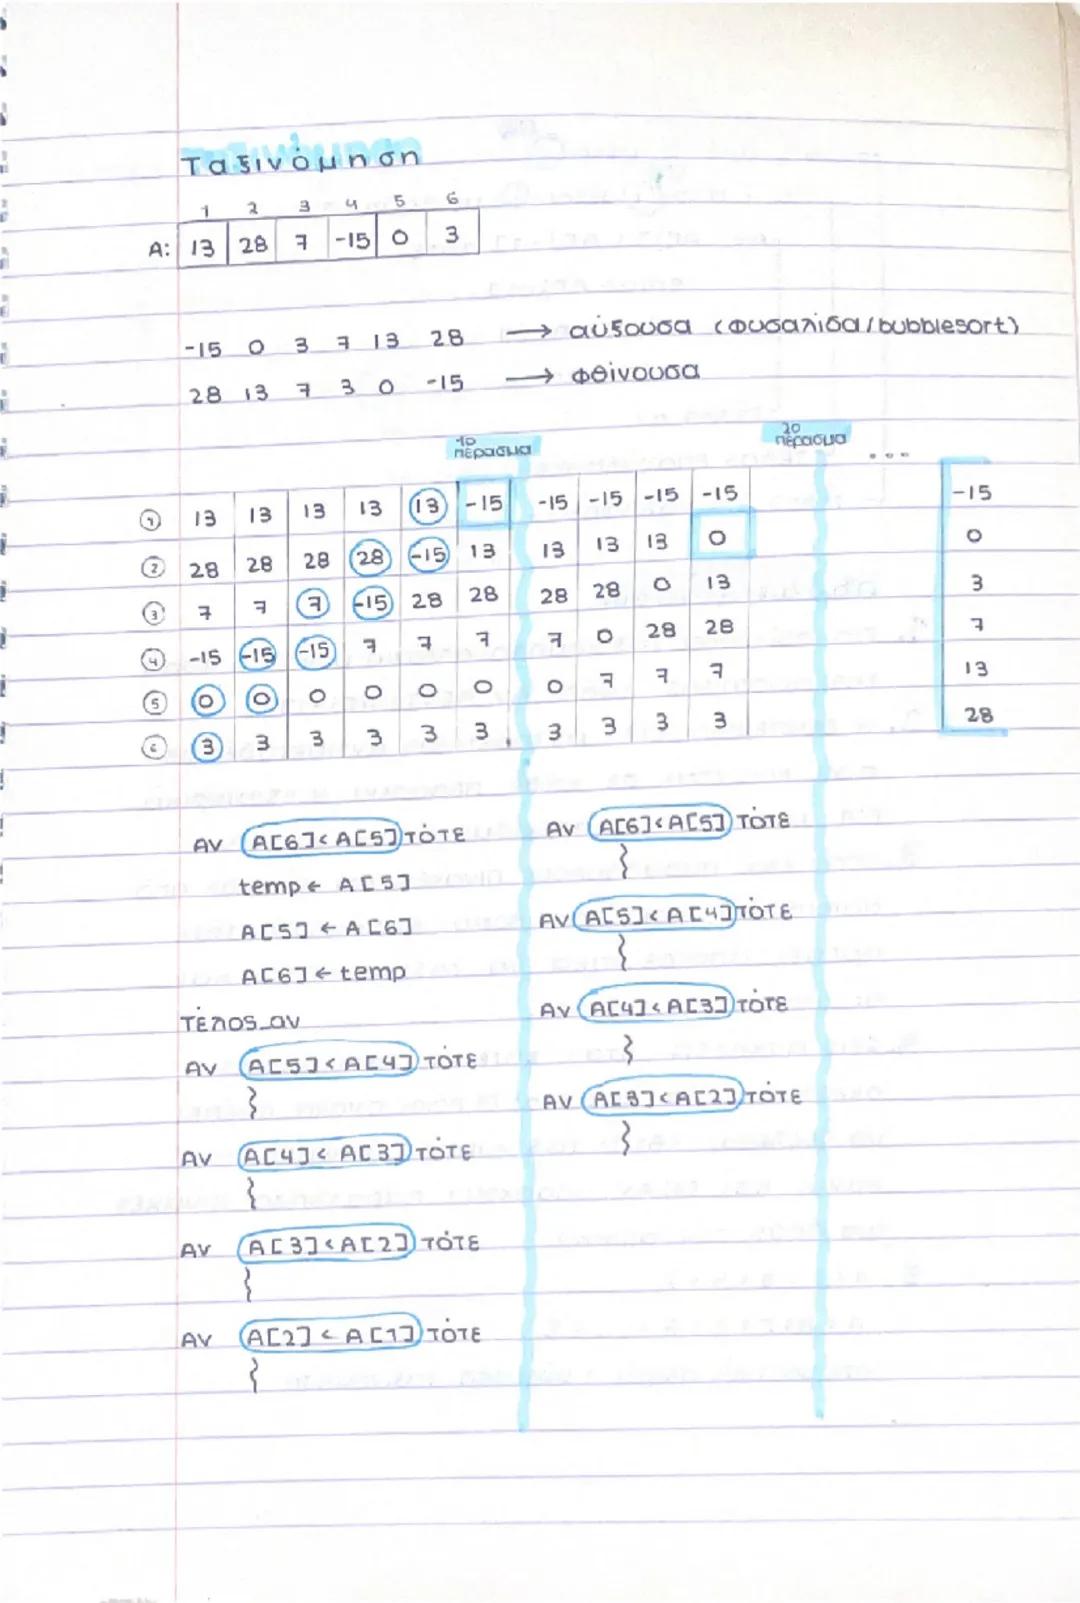 Ταξινόμηση
1 2 3 4 5 6
A: 13 28 7 -15 0 3
-15 0 3 7 13 28 → αύξουσα (φυσαλίδα/bubblesort)
28 13 7 3 0 -15 → φθίνουσα
1ο πέρασμα 2ο πέρασμα ...
1 13 13 13 13 13 -15 -15 -15 -15 -15 -15
2 28 28 28 28 -15 13 13 13 13 0 0
3 7 7 7 -15 28 28 28 28 0 13 3
4 -15 -15 -15 7 7 7 7 0 28 28 7
5 0 0 0 0 0 0 0 7 7 7 13
6 3 3 3 3 3 3 3 3 3 3 28
Αν A[6]<A[5] τότε
temp ← A[5]
A[5] ← A[6]
A[6] ← temp
Τέλος_αν
Αν A[5]<A[4] τότε
}
Αν A[4]<A[3] τότε
}
Αν A[3]<A[2] τότε
}
Αν A[2]<A[1] τότε
}
Αν A[6]<A[5] τότε
}
Αν A[5]<A[4] τότε
}
Αν A[4]<A[3] τότε
}
Αν A[3]<A[2] τότε
}